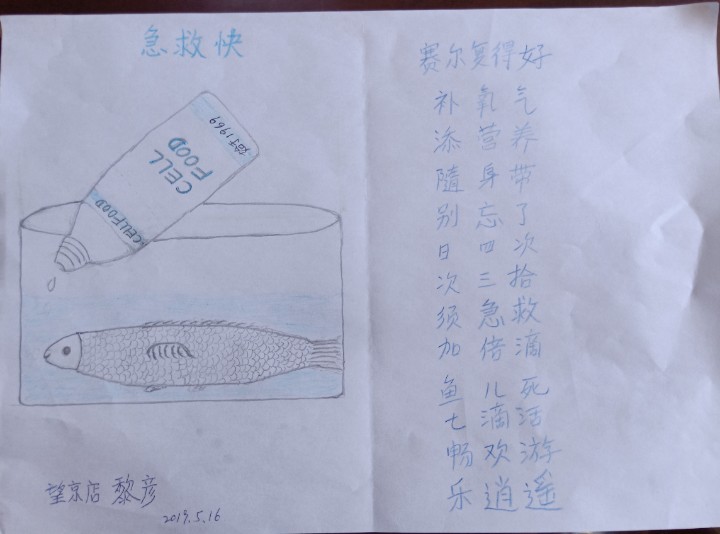 急救快
始于1969
CELL
FOOD
CELLFOOD
望京店 黎彦
2019.5.16
赛尔复得好
补氧气
添营养
随身带
别忘了
日四次
次三拾
须急救
加倍滴
鱼儿死
七滴活
畅欢游
乐逍遥